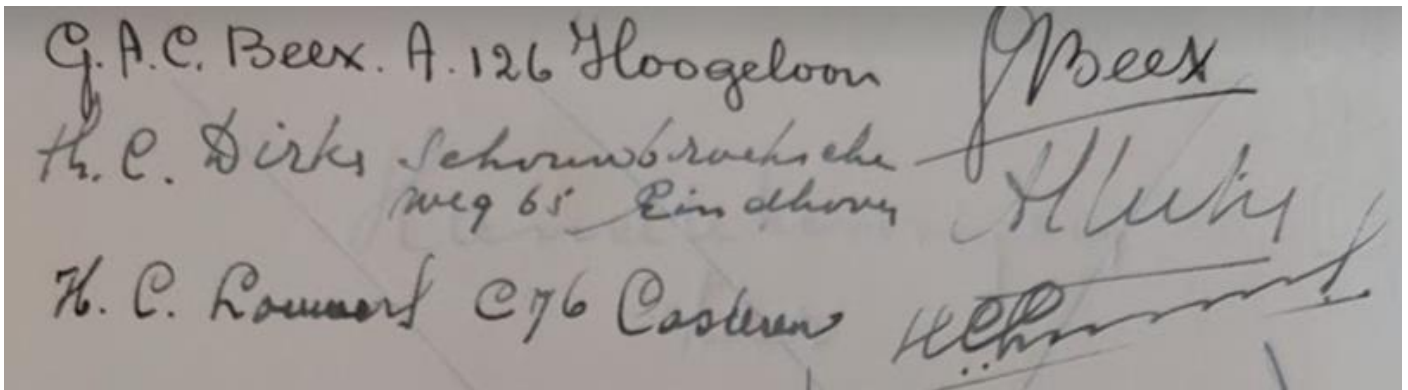 G.A.C. Beex. A. 126 Hoogeloon GBeex
Th. C. Dirks Schouwbroeksche
weg 65 Eindhoven
H. C. Lommers C 76 Casteren